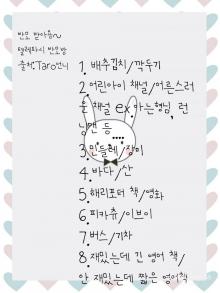 반모 받아용~
텔레파시 반모방
출처:Taro언니
1. 배추김치/깍두기
2 어린아이 채널/어른스러
운 채널 ex.아는형님, 런
닝맨 등....
3. 민들레/장미
4. 바다/산
5. 해리포터 책/영화
6. 피카츄/이브이
7. 버스/기차
8 재밌는데 긴 영어 책/
안 재밌는데 짧은 영어책